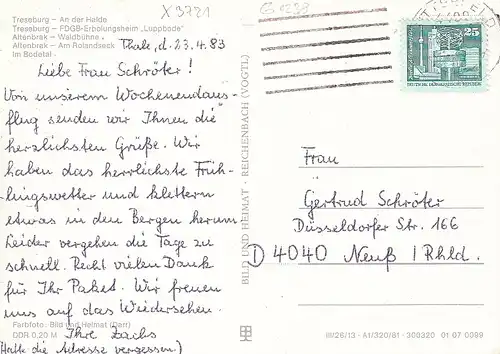 Treseburg – An der Halde
Treseburg – FDGB-Erholungsheim „Luppbode"
Altenbrak – Waldbühne
Altenbrak – Am Rolandseck
Im Bodetal
X 3721
Thale, d. 23.4.83
Liebe Frau Schröter!
Von unserem Wochenendaus-
flug senden wir Ihnen die
herzlichsten Grüße. Wir
haben das herrlichste Früh-
lingswetter und klettern
etwas in den Bergen herum.
Leider vergehen die Tage zu
schnell. Recht vielen Dank
für Ihr Paket. Wir freuen
uns auf das Wiedersehen.
Ihre Zachs
(Hatte die Adresse vergessen)
Farbfoto: Bild und Heimat (Darr)
DDR 0,20 M
BILD UND HEIMAT · REICHENBACH (VOGTL)
25
DEUTSCHE DEMOKRATISCHE REPUBLIK
Frau
Gertrud Schröter
Düsseldorfer Str. 166
D 4040 Neuß / Rhld.
III/26/13 · A1/320/81 · 300320 01 07 0099